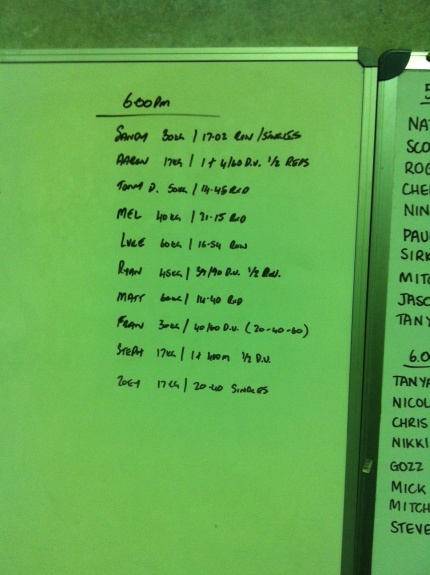 6:00pm
SANDY 30KG / 17-02 ROW / SINGLES
AARON 17KG / 1 + 4/60 D.U. 1/2 REPS
TONY D. 50KG / 14-45 RXD
MEL 40KG / 21-15 RXD
LUKE 60KG / 16-54 ROW
RYAN 45KG / 39/90 D.U. 1/2 RUN.
MATT 60KG / 14-40 RXD
FRAN 30KG / 40/60 D.U. (20-40-60)
STEPH 17KG / 1 + 400m 1/2 D.U.
ZOEY 17KG / 20-40 SINGLES
5
NA
SCO
ROG
CHE
NIN
PAU
SIRK
MITC
JASO
TANY
6.0
TANYA
NICOL
CHRIS
NIKKI
GOZZ
MICK
MITCH
STEVE